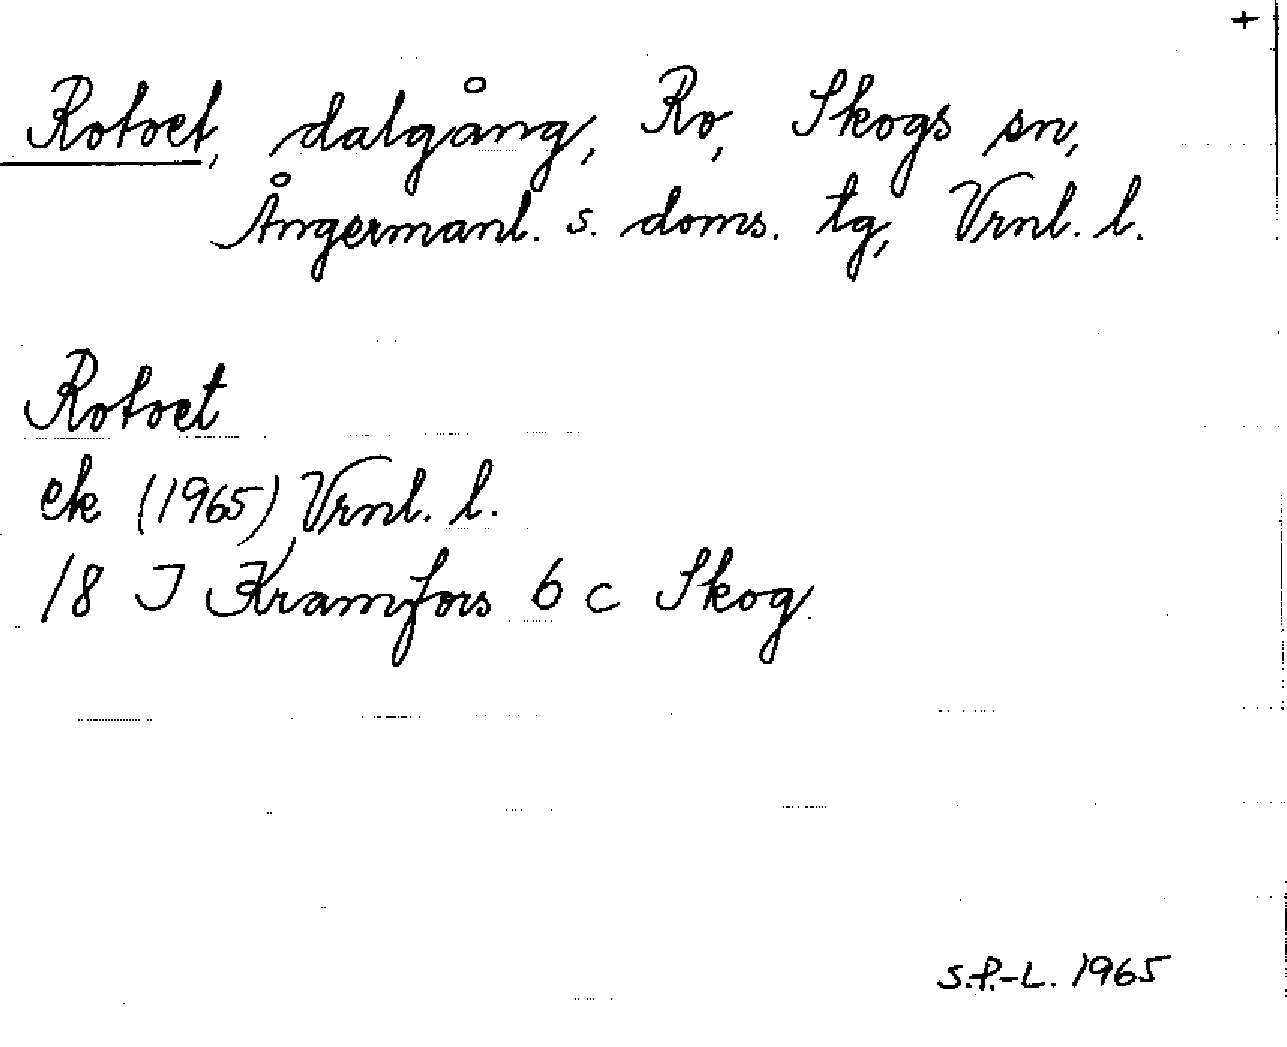 +
Rotvet, dalgång, Ro, Skogs sn,
Ångermanl. s. doms. tg, Vrnl. l.
Rotvet
ek (1965) Vrnl. l.
18 I Kramfors 6 c Skog
S.P.-L. 1965